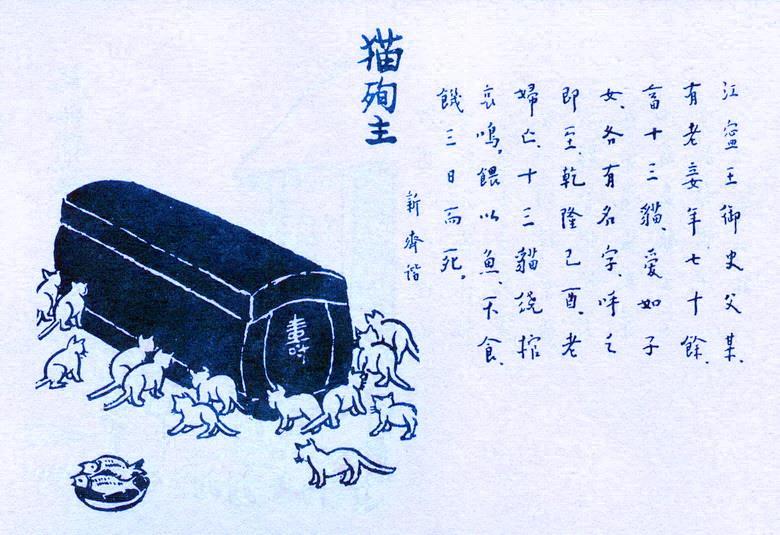 江寍王御史父某、
有老妾年七十餘、
畜十三貓、愛如子
女、各有名字、呼之
即至、乾隆己酉、老
婦亡、十三貓繞棺
哀鳴。餵以魚、不食、
饑三日而死。
新齊谐
猫殉主